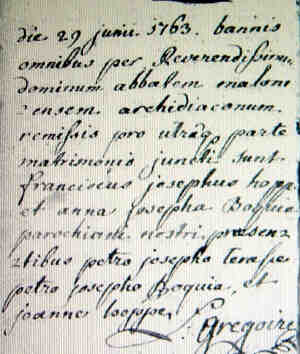 die 29 junii 1763. bannis
omnibus per Reverendissimum
dominum abbatem malone
ensem archidiaconum
remissis pro utraq parte
matrimonio juncti sunt
franciscus josephus hopp
et anna josepha Boquia
parochiani nostri præsen
tibus petro josepho
petro josepho Boquia, et
joanne loeppe
Gregoire